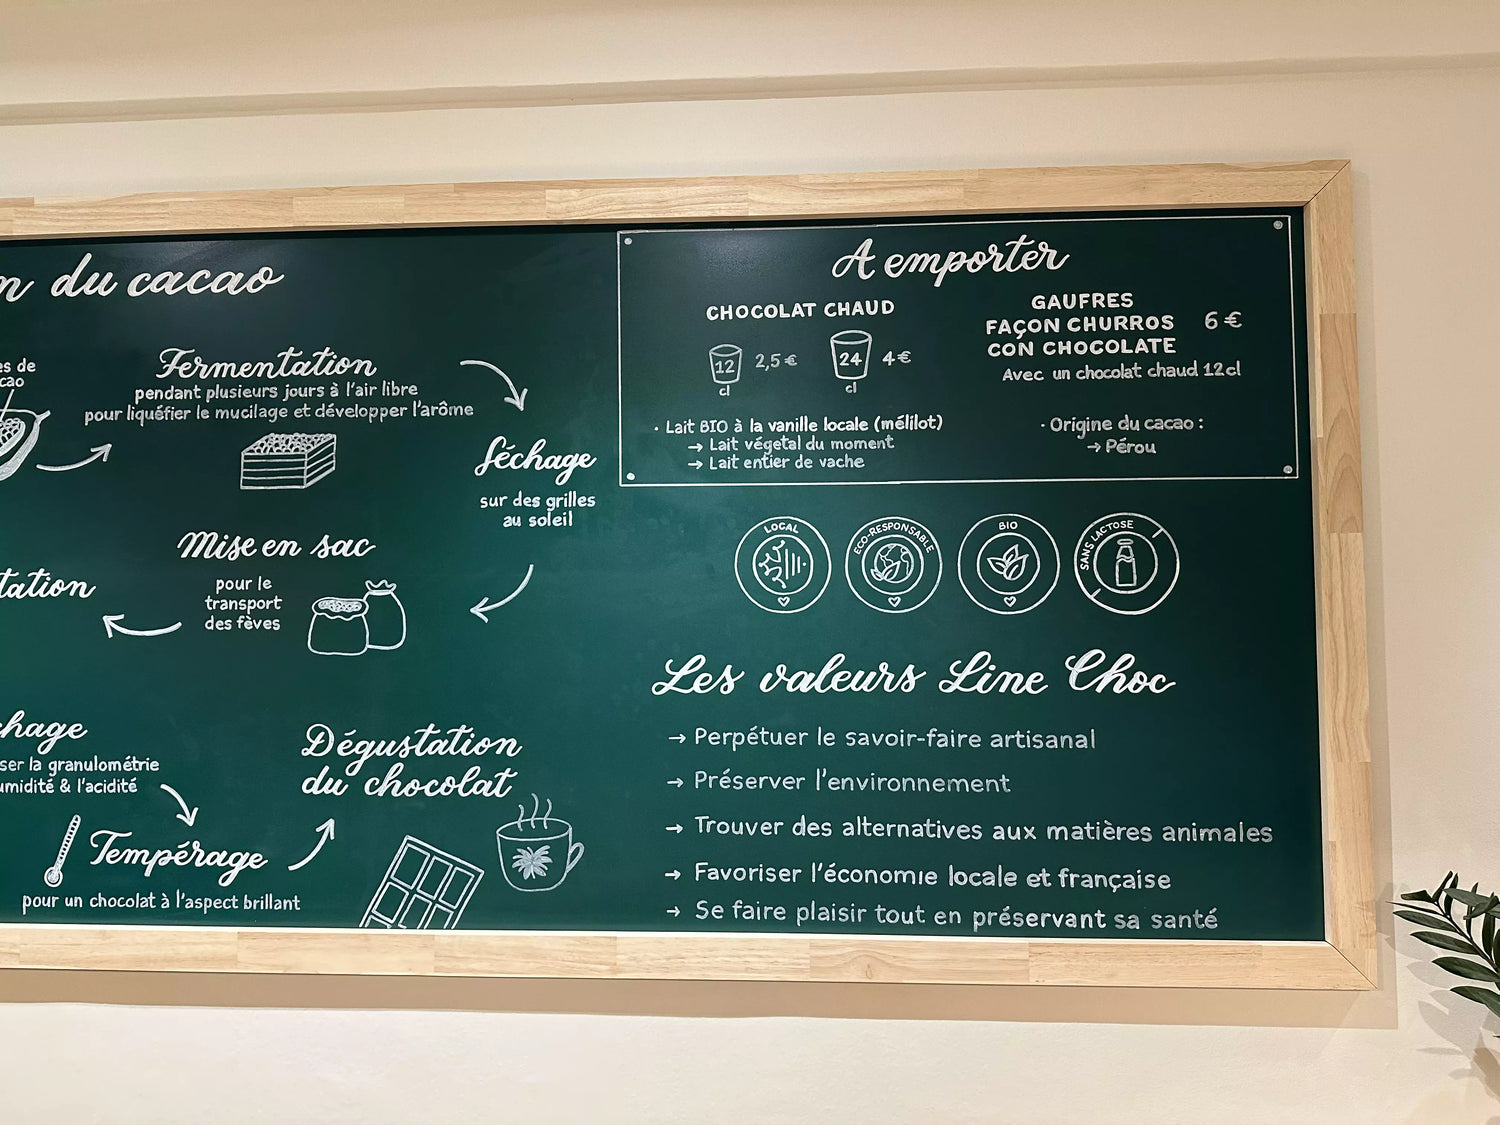 n du cacao
es de
cao
Fermentation
pendant plusieurs jours à l'air libre
pour liquéfier le mucilage et développer l'arôme
Séchage
sur des grilles
au soleil
Mise en sac
pour le
transport
des fèves
tation
hage
ser la granulométrie
umidité & l'acidité
Tempérage
pour un chocolat à l'aspect brillant
Dégustation
du chocolat
A emporter
CHOCOLAT CHAUD
12 cl 2,5 €
24 cl 4 €
• Lait BIO à la vanille locale (mélilot)
→ Lait végétal du moment
→ Lait entier de vache
GAUFRES
FAÇON CHURROS 6 €
CON CHOCOLATE
Avec un chocolat chaud 12cl
• Origine du cacao :
→ Pérou
LOCAL
ECO-RESPONSABLE
BIO
SANS LACTOSE
Les valeurs Line Choc
→ Perpétuer le savoir-faire artisanal
→ Préserver l'environnement
→ Trouver des alternatives aux matières animales
→ Favoriser l'économie locale et française
→ Se faire plaisir tout en préservant sa santé